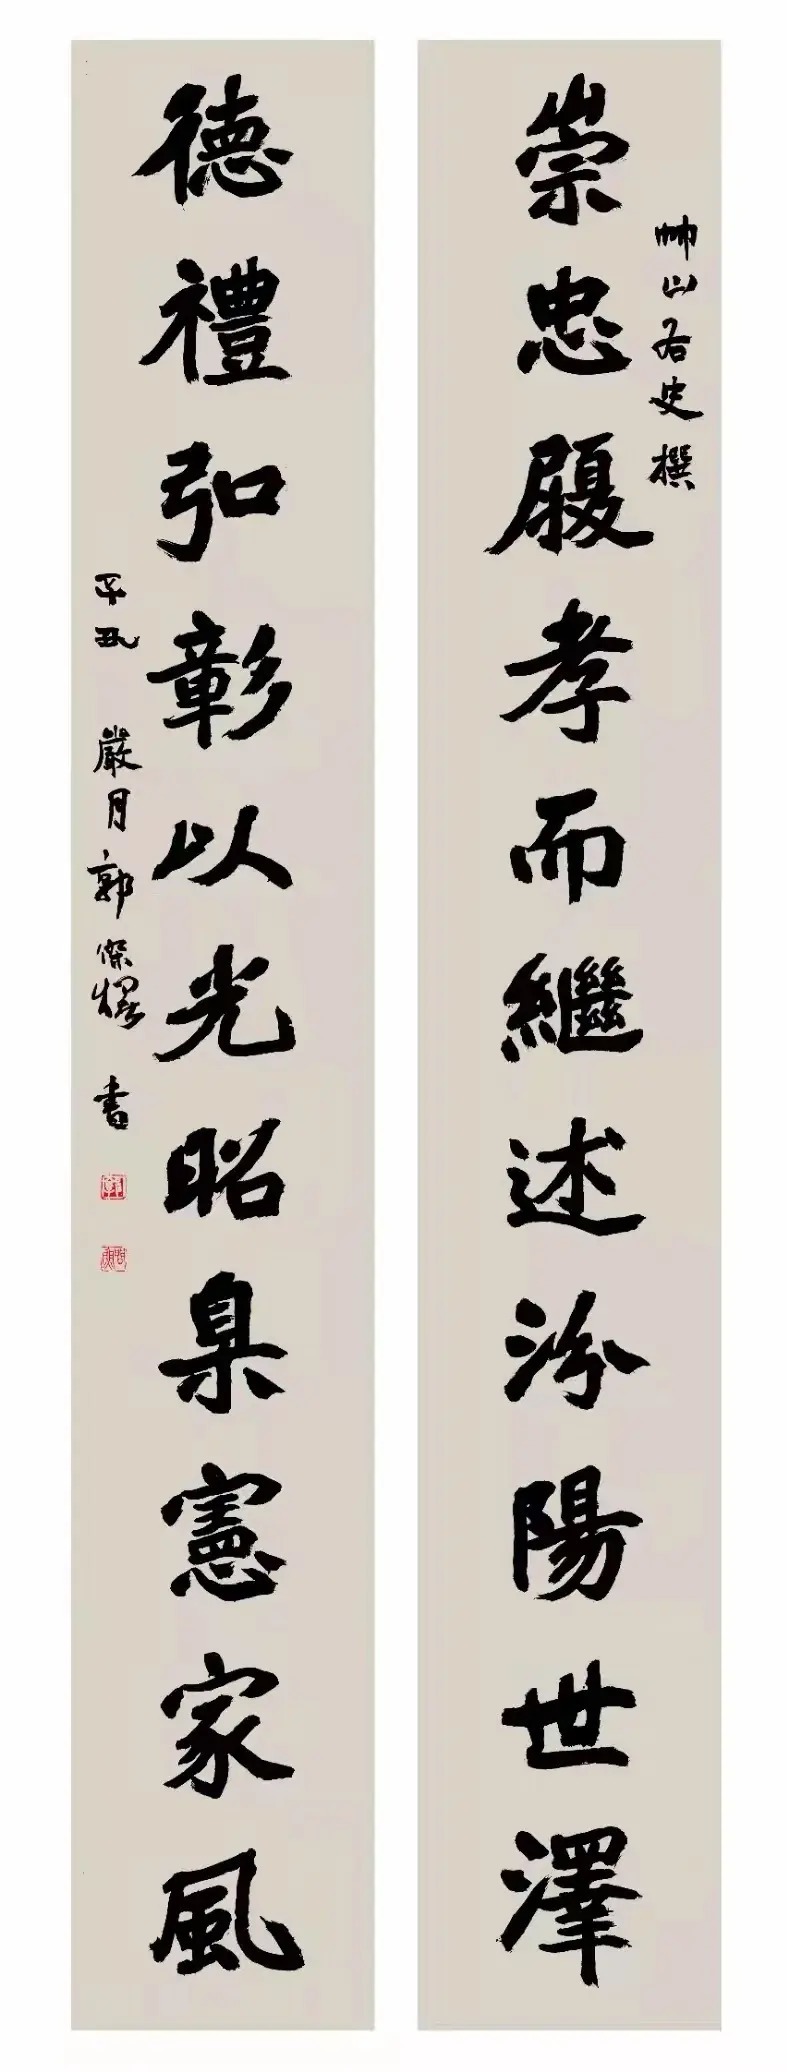 崇忠履孝而繼述汾陽世澤
帥山右史撰
德禮弘彰以光昭臬憲家風
辛丑 嚴月郭傑燿 書